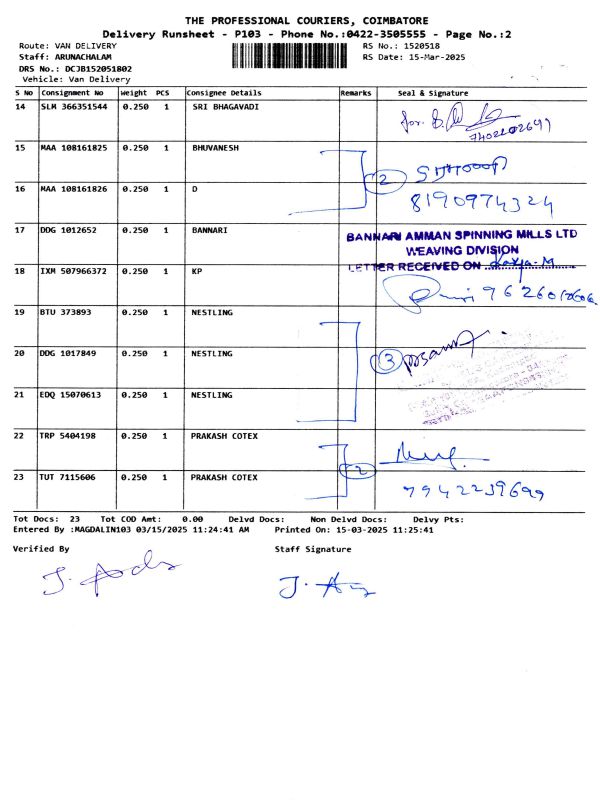 THE PROFESSIONAL COURIERS, COIMBATORE
Delivery Runsheet - P103 - Phone No.:0422-3505555 - Page No.:2
Route: VAN DELIVERY RS No.: 1520518
Staff: ARUNACHALAM RS Date: 15-Mar-2025
DRS No.: DCJB152051802
Vehicle: Van Delivery
S No Consignment No Weight PCS Consignee Details Remarks Seal & Signature
14 SLM 366351544 0.250 1 SRI BHAGAVADI
for
15 MAA 108161825 0.250 1 BHUVANESH
2
16 MAA 108161826 0.250 1 D
8190974324
17 DDG 1012652 0.250 1 BANNARI
BANNARI AMMAN SPINNING MILLS LTD
WEAVING DIVISION
LETTER RECEIVED ON
18 IXM 507966372 0.250 1 KP
19 BTU 373893 0.250 1 NESTLING
20 DDG 1017849 0.250 1 NESTLING
3
21 EDQ 15070613 0.250 1 NESTLING
22 TRP 5404198 0.250 1 PRAKASH COTEX
2
23 TUT 7115606 0.250 1 PRAKASH COTEX
7942239699
Tot Docs: 23 Tot COD Amt: 0.00 Delvd Docs: Non Delvd Docs: Delvy Pts:
Entered By :MAGDALIN103 03/15/2025 11:24:41 AM Printed On: 15-03-2025 11:25:41
Verified By Staff Signature